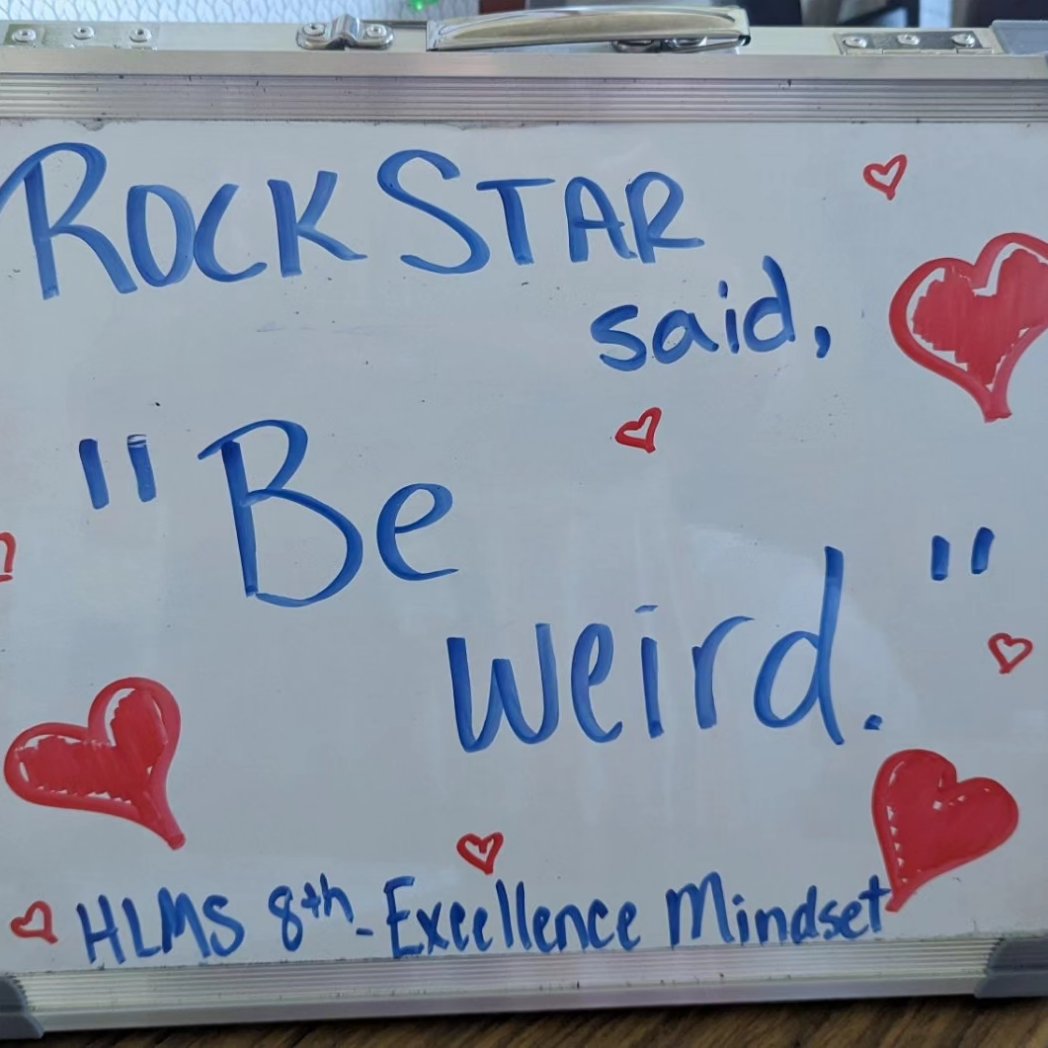 ROCK STAR
said,
"Be
weird."
HLMS 8th - Excellence Mindset